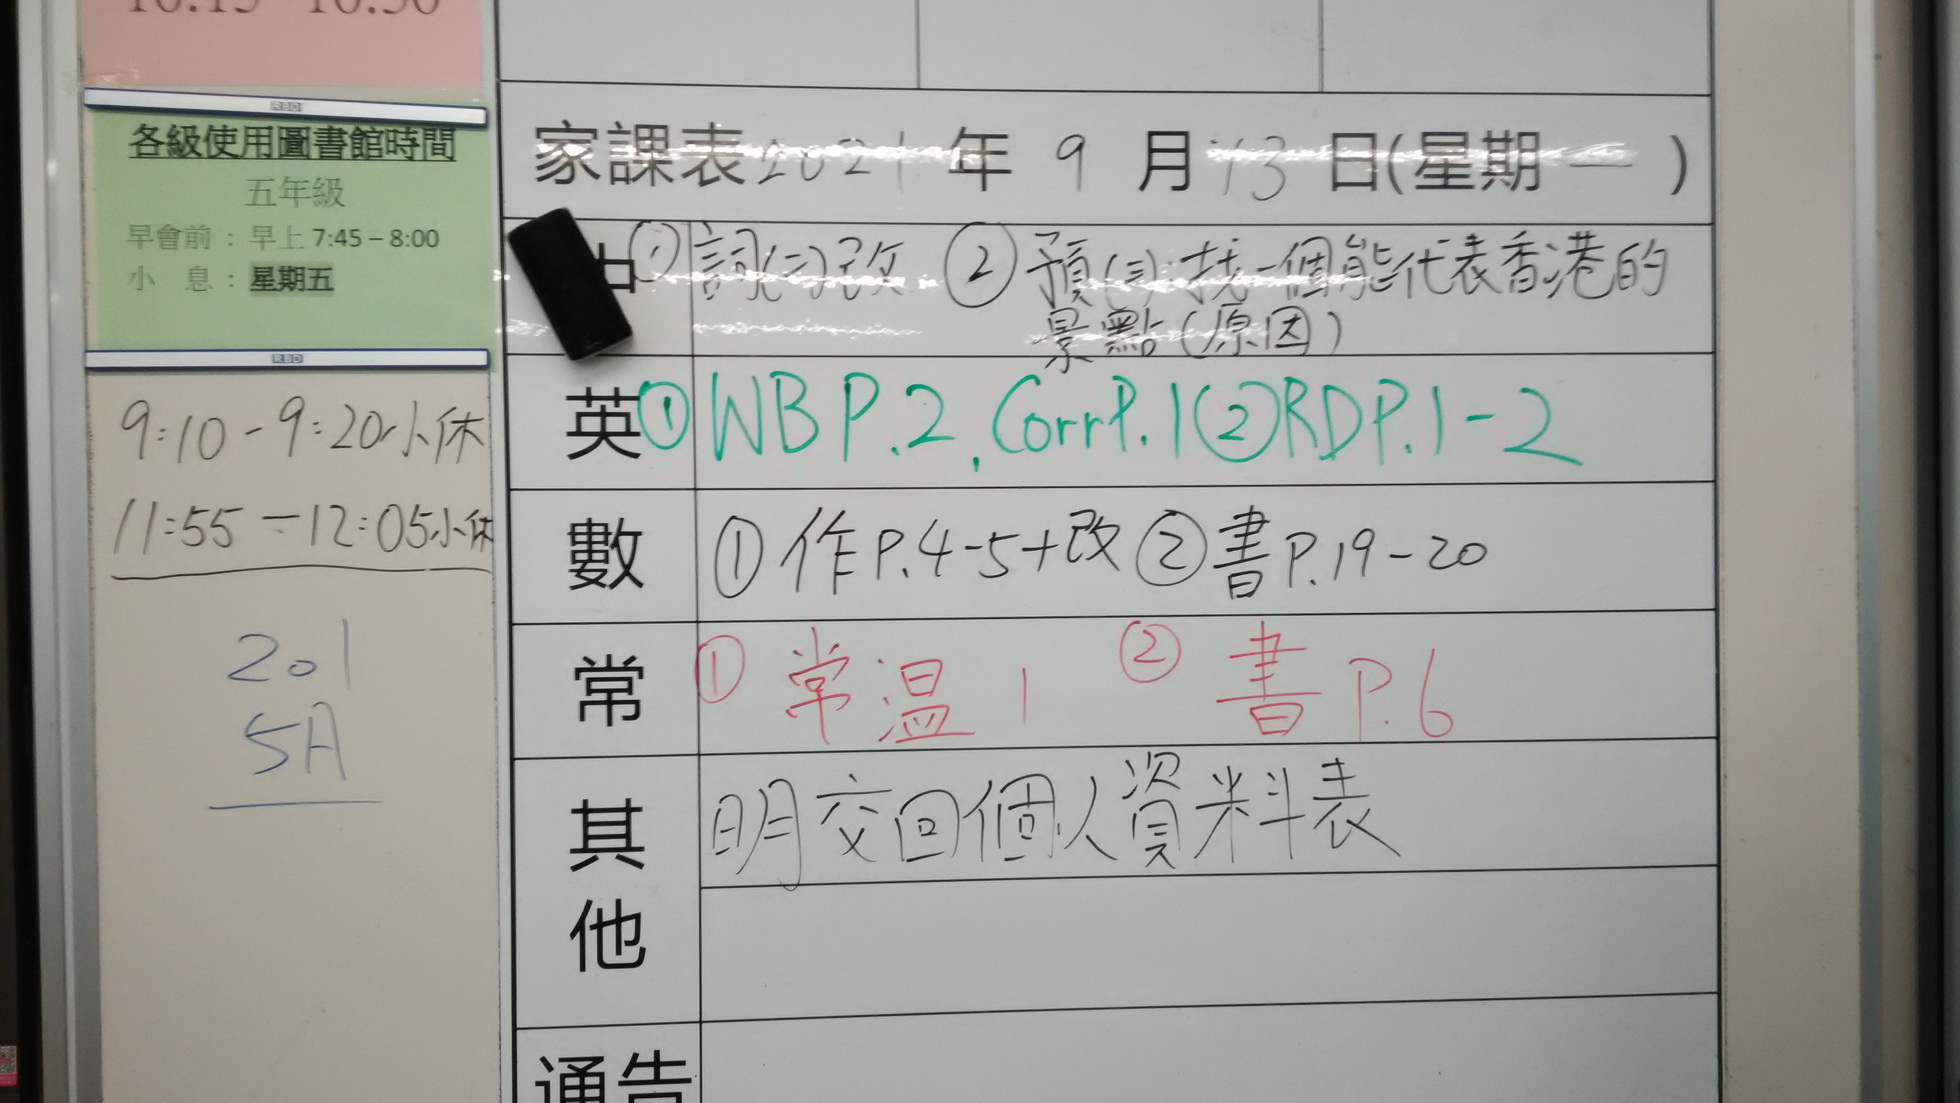 RBD
各級使用圖書館時間
五年級
早會前：早上 7:45 – 8:00
小 息：星期五
RBD
9:10 - 9:20小休
11:55 - 12:05小休
201
5A
家課表2021 年 9 月 13 日(星期 一 )
① 詞(二)改 ② 預(三):找一個能代表香港的
景點(原因)
英 ① WB P.2, Corr P.1 ② RD P.1-2
數 ① 作 P.4-5+改 ② 書 P.19-20
常 ① 常温 1 ② 書 P.6
其他 明交回個人資料表
通告